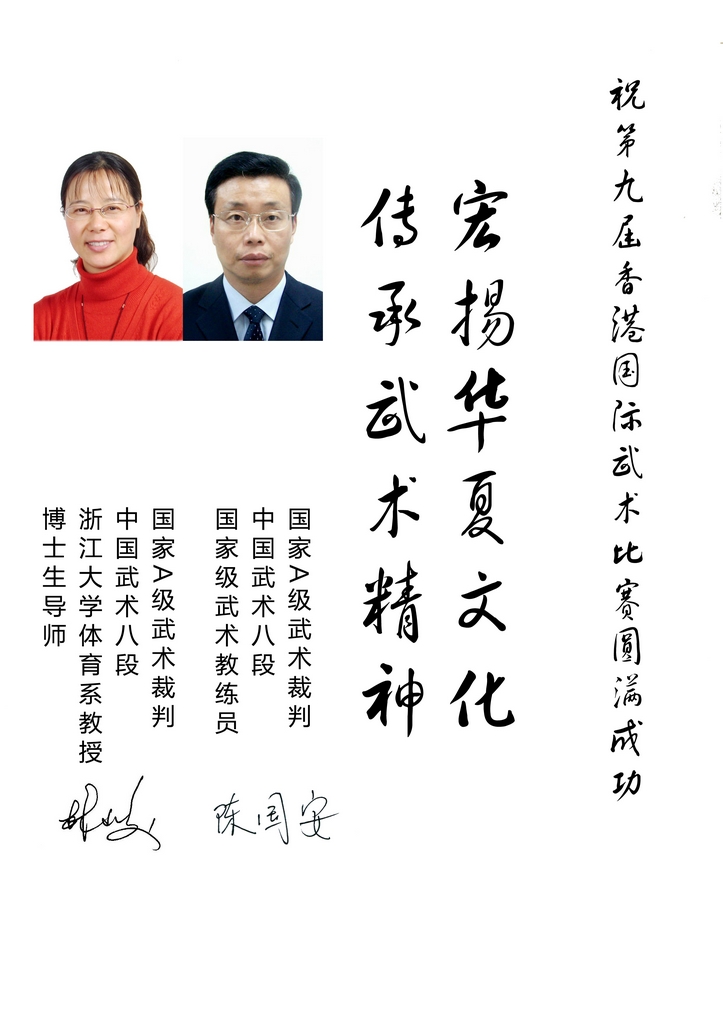 祝第九届香港国际武术比賽圓满成功
宏揚华夏文化
传承武术精神
国家A级武术裁判
中国武术八段
国家级武术教练员
陈国安
国家A级武术裁判
中国武术八段
浙江大学体育系教授
博士生导师